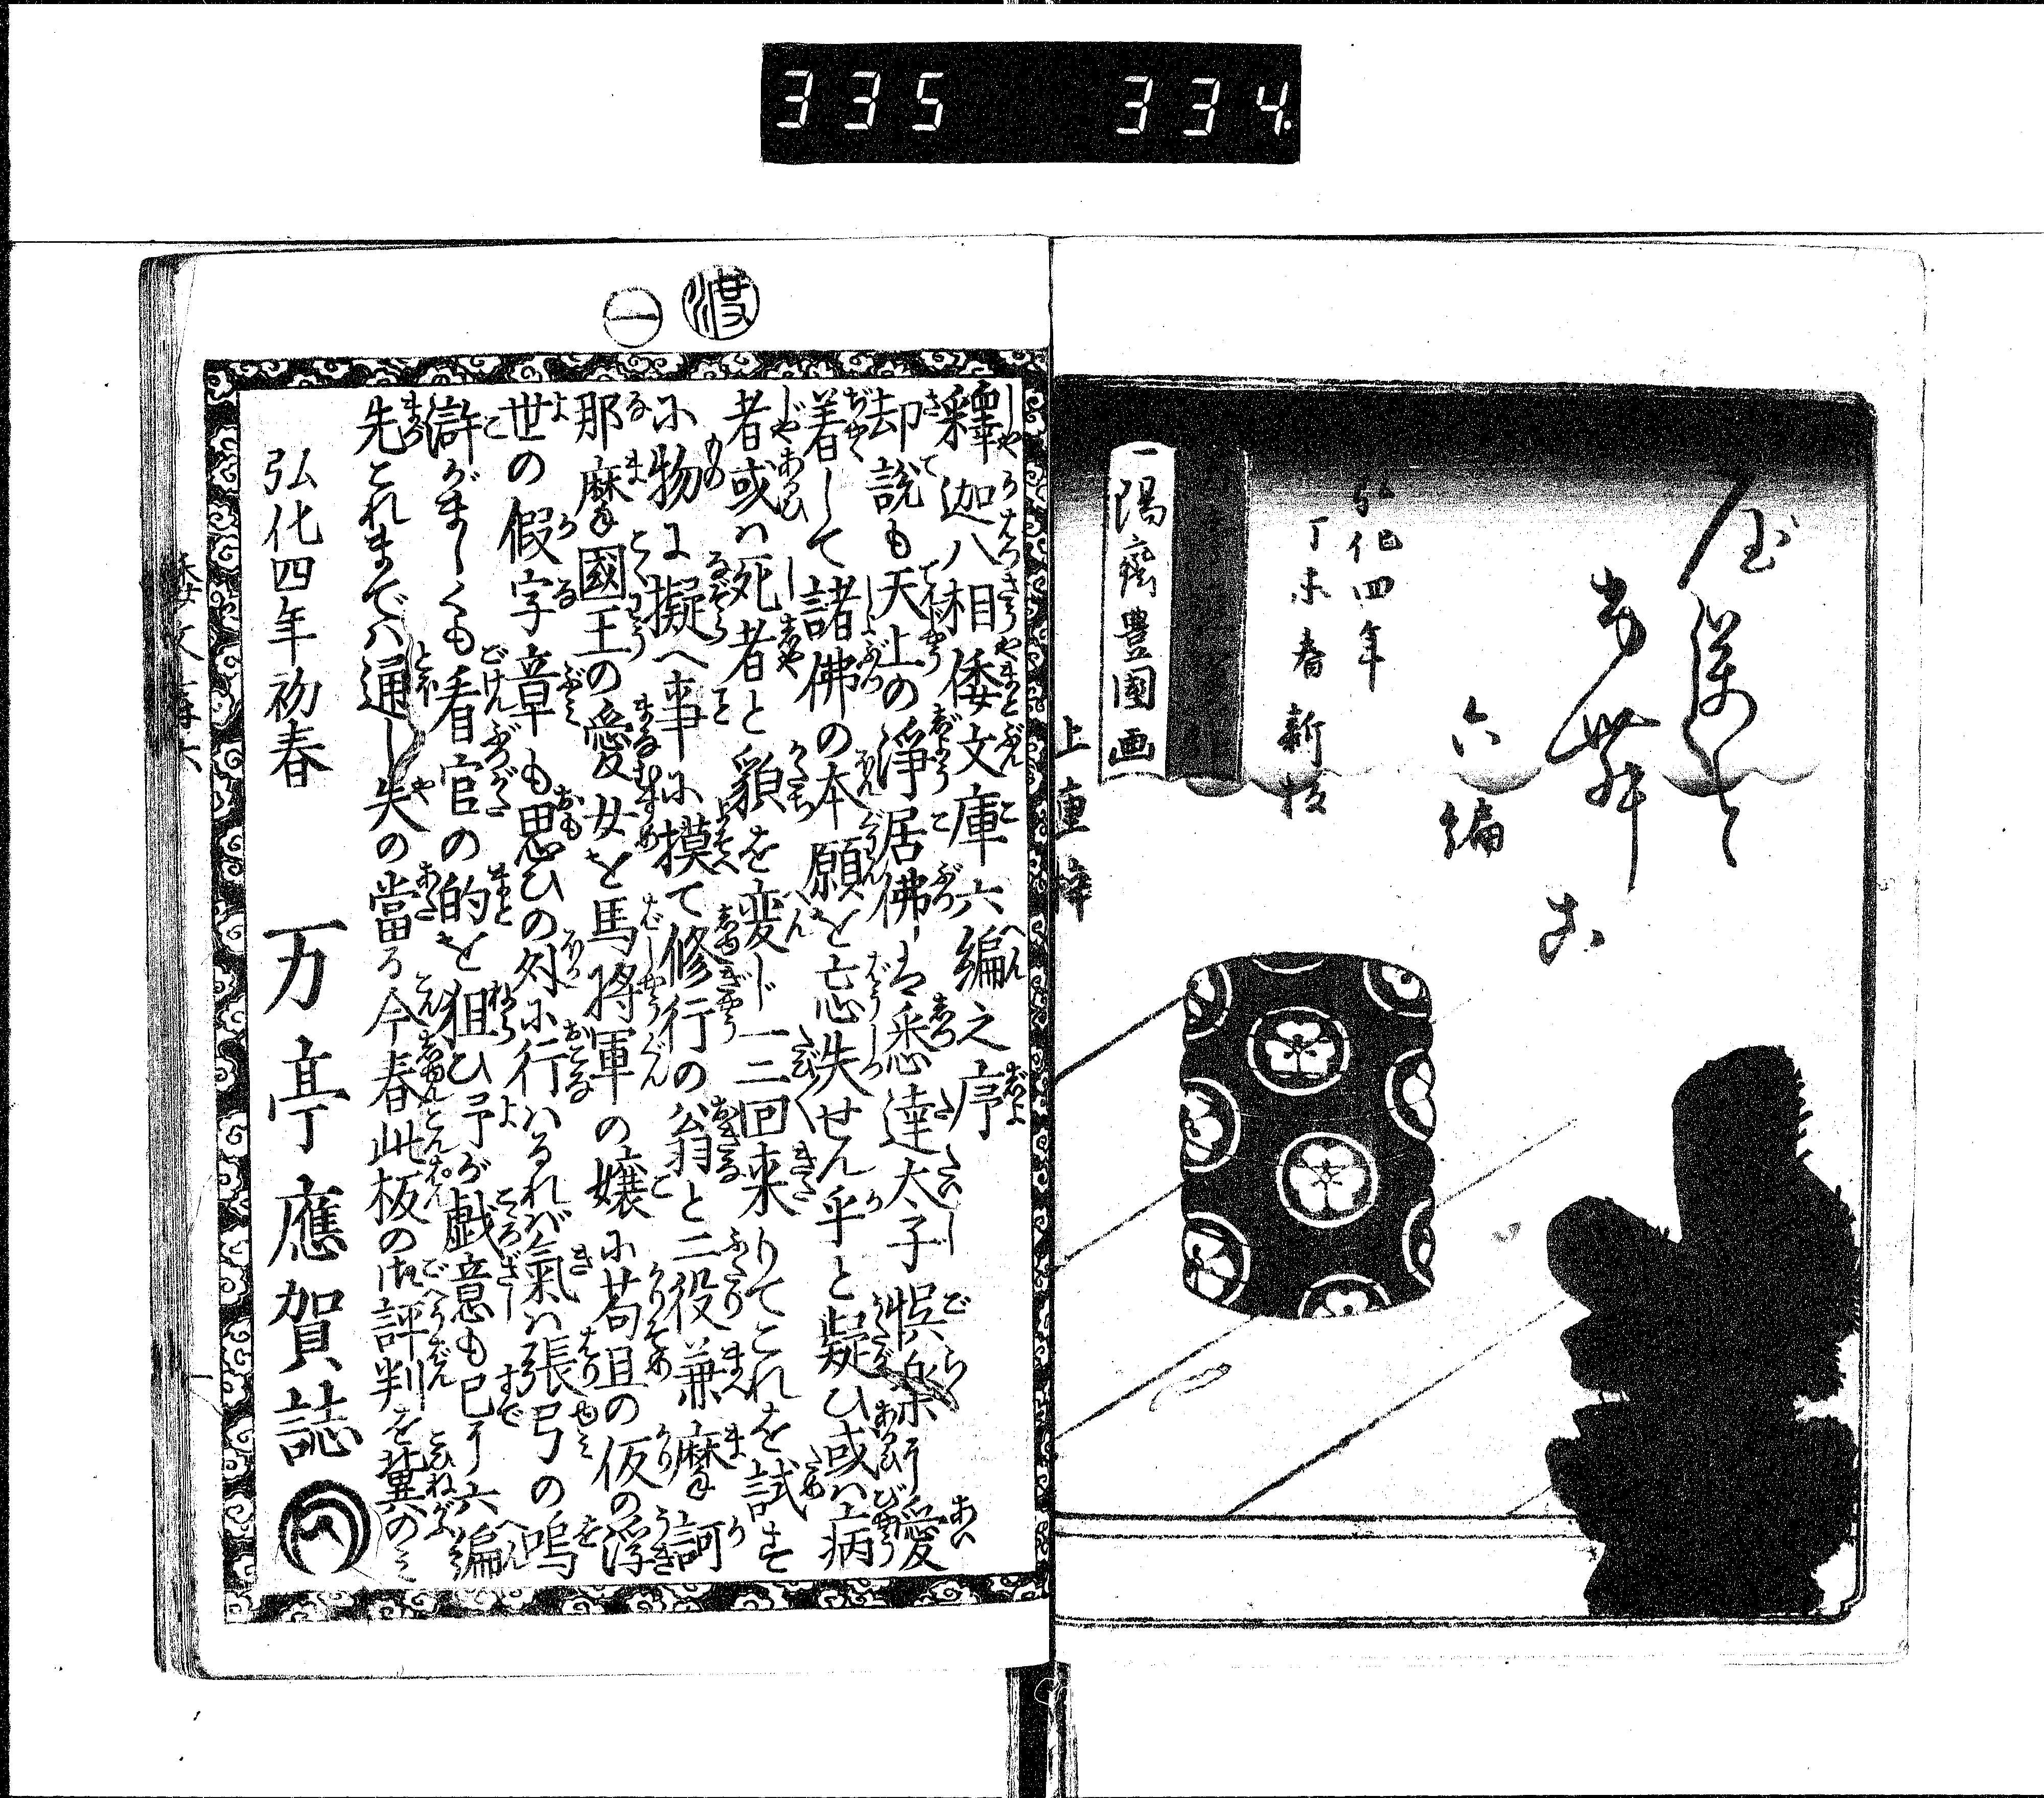 335 334
六編
弘化四年
丁未春新板
一陽齋豊国画
上
渡
一
釋迦八相倭文庫六編之序
却説も天上の淨居佛ハ悉達太子娯楽に愛
着して諸佛の本願を忘失せん乎と疑ひ或ハ病
者或ハ死者と貌を変じ一二回来りてこれを試す
に物に擬へ事に摸て修行の翁と二役兼摩訶
那摩國王の愛女を馬将軍の嬢に苟且の仮の浮
世の假字章も思ひの外に行ハるれバ氣ハ張弓の嗚
滸がましくも看官の的を狙ひ予が戯意も已に六編
先これまでハ通し矢の當る今春此板の御評判を冀のミ
弘化四年初春
万亭應賀誌